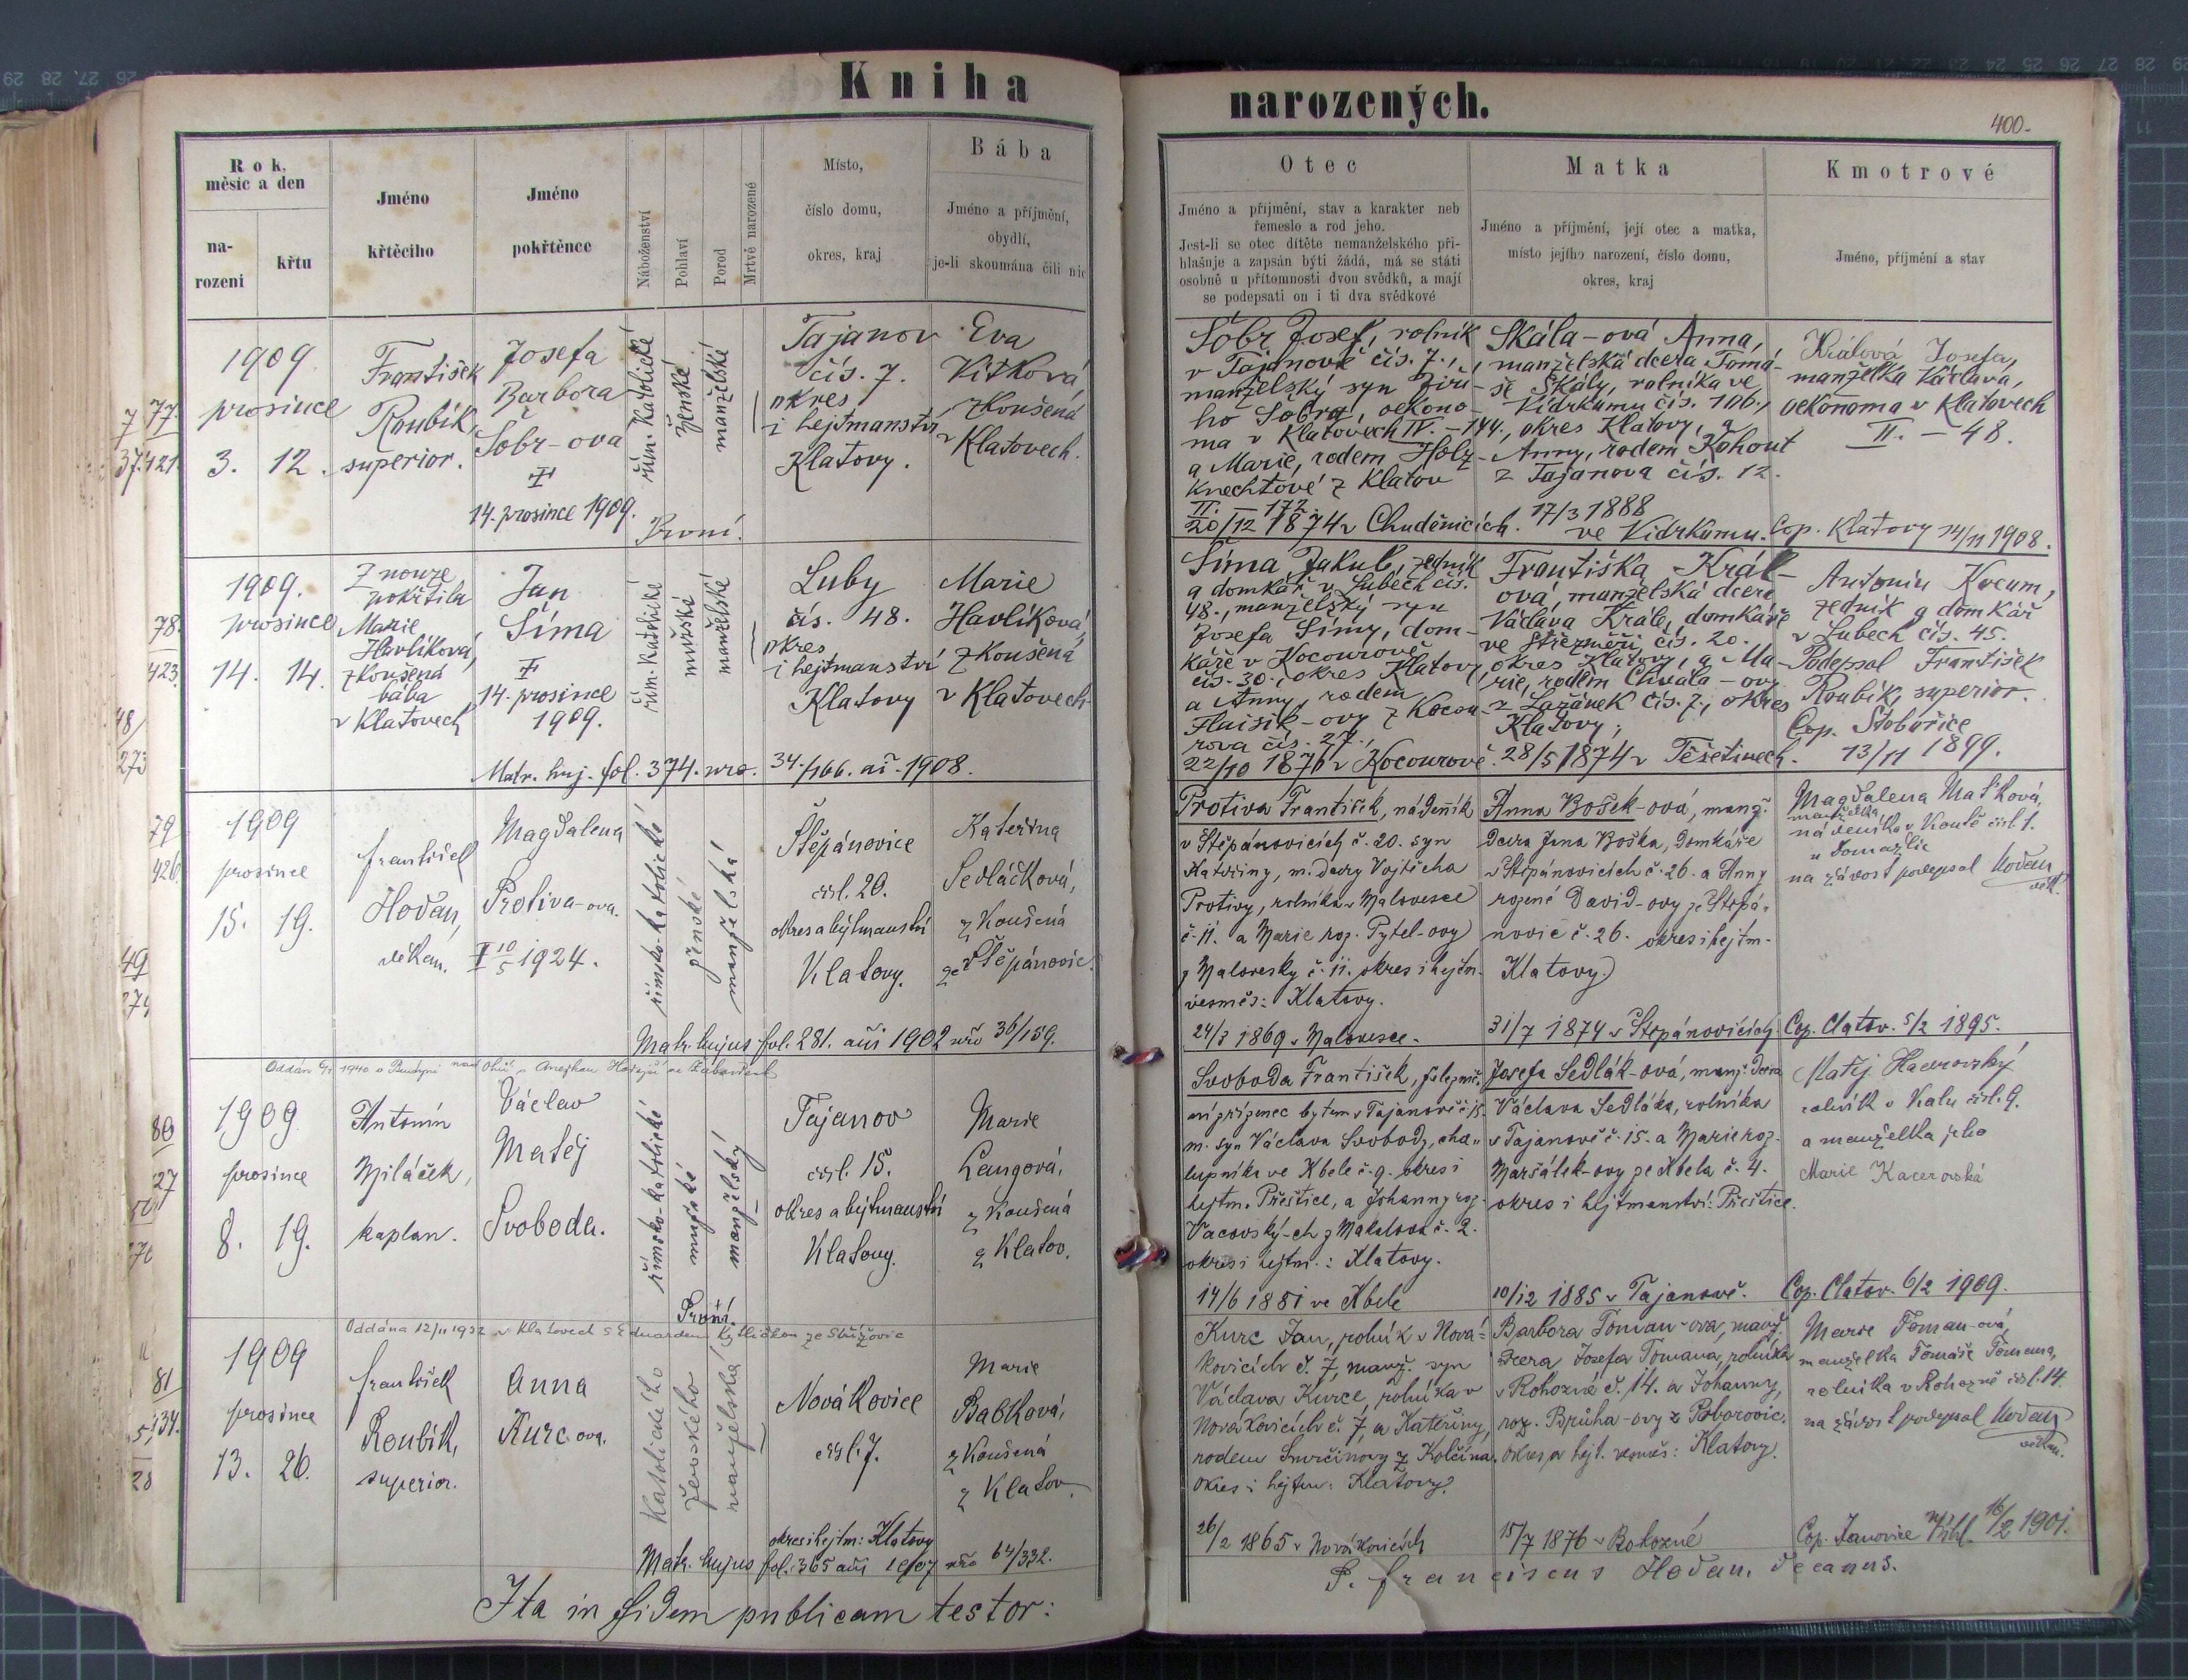 Kniha
narozených.
400.
Rok,
měsíc a den
na-
rozeni
křtu
Jméno
křtěcího
Jméno
pokřtěnce
Náboženství
Pohlaví
Porod
Mrtvě narozené
Místo,
číslo domu,
okres, kraj
Bába
Jméno a příjmění,
obydlí,
je-li skoumána čili nic
Otec
Jméno a přijmění, stav a karakter neb
řemeslo a rod jeho.
Jest-li se otec dítěte nemanželského při-
hlašuje a zapsán býti žádá, má se státi
osobně u přítomnosti dvou svědků, a mají
se podepsati on i ti dva svědkové
Matka
Jméno a příjmění, její otec a matka,
místo jejího narození, číslo domu,
okres, kraj
Kmotrové
Jméno, příjmění a stav
77.
1909
prosince
3. 12.
František
Roubík,
superior.
Josefa
Barbora
Šobr-ova
14. prosince 1909.
řím. katolické
ženské
manželské
První.
Tajanov
čís. 7.
okres
i hejtmanství
Klatovy.
Eva
Vítková,
zkoušená
v Klatovech.
Šobr Josef, rolník
v Tajanově čís. 7.,
manželský syn Jiří-
ho Šobra, oekono-
ma v Klatovech IV. – 144.,
a Marie, rodem Holz-
knechtové z Klatov
II. – 172.
20/12 1874 v Chuděnicích.
Skála-ová Anna,
manželská dcera Tomá-
še Skály, rolníka ve
Vídrkumu čís. 106.,
okres Klatovy, a
Anny, rodem Kohout
z Tajanova čís. 12.
17/3 1888
ve Vídrkumu.
Králová Josefa,
manželka Václava,
oekonoma v Klatovech
II. – 48.
Cop. Klatovy 14/11 1908.
78.
423.
1909.
prosince
14. 14.
Z nouze
pokřtila
Marie
Havlíková,
zkoušená
bába
v Klatovech
Jan
Šíma
14. prosince
1909.
řím. katolické
mužské
manželské
Luby
čís. 48.
okres
i hejtmanství
Klatovy
Marie
Havlíková,
zkoušená
v Klatovech
Matr. huj. fol. 374. nro. 34./166. ai. 1908.
Šíma Jakub, zedník
a domkář v Lubech čís.
48., manželský syn
Josefa Šímy, dom-
káře v Kocourově
čís. 30., okres Klatovy,
a Anny, rodem
z Kocou-
rova čís. 27.,
22/10 1876 v Kocourově.
Františka Král-
ová, manželská dcera
Václava Krále, domkáře
ve Střezměři čís. 20.
okres Klatovy, a Ma-
rie, rodem Chvála-ovy
z Lažánek čís. 7., okres
Klatovy,
28/5 1874 v Těšetinech.
Antonín Kocum,
zedník a domkář
v Lubech čís. 45.
Podepsal František
Roubík, superior.
Cop. Stobořice
13/11 1899.
79
426
1909
prosince
15. 19.
František
Hodan,
děkan.
Magdalena
Protiva-ova.
10/5 1924.
římsko-katolické
ženské
manželská
Štěpánovice
čísl. 20.
okres a hejtmanství
Klatovy.
Kateřina
Sedláčková,
zkoušená
ze Štěpánovic.
Matr. hujus fol. 281. ai 1902 nro 36/159.
Protiva František, nádeník
v Štěpánovicích č. 20. syn
Kateřiny, m. dcery Vojtěcha
Protivy, rolníka v Malovesce
č. 11. a Marie roz. Pytel-ovy
z Malovesky č. 11. okres i hejtm.
vesměs: Klatovy.
24/3 1869 v Malovesce.
Anna Bošek-ová, manž.
dcera Jana Boška, domkáře
v Štěpánovicích č. 26. a Anny
rozené David-ovy ze Štěpá-
novic č. 26. okres i hejtm.
Klatovy.
31/7 1874 v Štěpánovicích.
Magdalena Maťková,
manželka
nádeníka v Koutě čísl. 1.
u Domažlic
na závost podepsal Hodan
děk.
Cop. Clatov. 5/2 1895.
80
1909
prosince
8. 19.
Antonín
Miláček,
kaplan.
Václav
Matěj
Svoboda.
římsko-katolické
mužské
manželský
První.
Tajanov
čísl. 15.
okres a hejtmanství
Klatovy.
Marie
Langová,
zkoušená
z Klatov.
Svoboda František,
bytem v Tajanově č. 15.
m. syn Václava Svobody, cha-
lupníka ve Kbele č. 9. okres i
hejtm. Přeštice, a Johanny roz.
Vacovský-ch z Makalova č. 2.
okres i hejtm.: Klatovy.
14/6 1881 ve Kbele
Josefa Sedlák-ová, manž. dcera
Václava Sedláka, rolníka
v Tajanově č. 15. a Marie roz.
Maršálek-ovy ze Kbela č. 4.
okres i hejtmanství: Přeštice.
10/12 1885 v Tajanově.
Matěj Kacerovský
rolník v Kalu čísl. 9.
a manželka jeho
Marie Kacerovská
Cop. Clatov. 6/2 1909.
Oddána 12/11 1932 v Klatovech s Eduardem Kytličkou ze Střížovic
81
134.
1909
prosince
13. 26.
František
Roubík,
superior.
Anna
Kurc-ova.
Katolického
ženského
manželská
Novákovice
čísl. 7.
okres i hejtm: Klatovy
Marie
Babková,
zkoušená
z Klatov.
Matr. hujus fol. 365 ai 1907 nro 64/332.
Kurc Jan, rolník v Nová-
kovicích č. 7, manž. syn
Václava Kurce, rolníka v
Novákovicích č. 7, a Kateřiny,
rodem Smrčinovy z Kolčína.
okres i hejtm: Klatovy.
26/2 1865 v Novákovicích
Barbora Toman-ova, manž.
dcera Josefa Tomana, rolníka
v Rohozné č. 14. a Johanny,
roz. Brůha-ovy z Poborovic.
okres a hejt. vesměs: Klatovy.
15/7 1876 v Rohozné
Marie Toman-ová,
manželka Tomáše Tomana,
rolníka v Rohozně čísl. 14.
na závost podepsal Hodan
děkan.
Cop. Janovice 16/2 1901.
Ita in fidem publicam testor:
P. Franciscus Hodan, decanus.